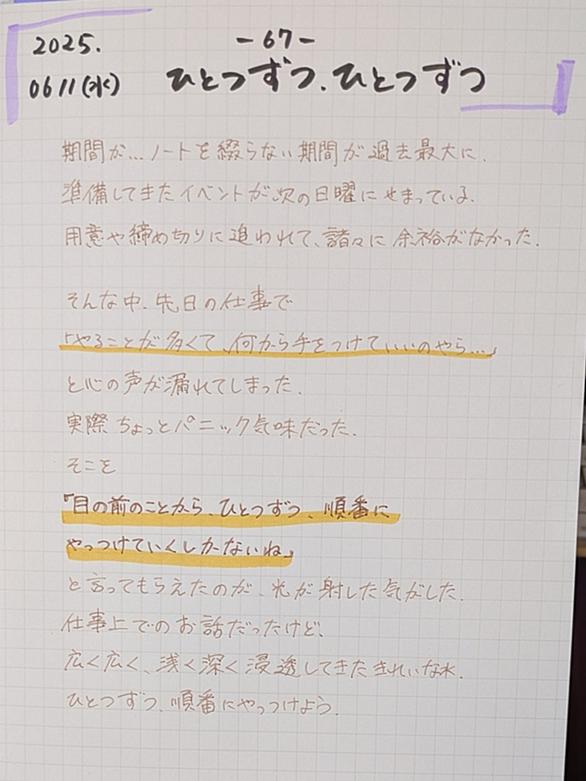 2025.
06 11 (水)
-67-
ひとつずつ、ひとつずつ
期間が…ノートを綴らない期間が過去最大に。
準備してきたイベントが次の日曜にせまっている。
用意や締め切りに追われて、諸々に余裕がなかった。
そんな中、先日の仕事で
「やることが多くて、何から手をつけていいのやら…」
と心の声が漏れてしまった。
実際ちょっとパニック気味だった。
そこを
「目の前のことから、ひとつずつ、順番に
やっつけていくしかないね」
と言ってもらえたのが、光が射した気がした。
仕事上でのお話だったけど、
広く広く、浅く深く浸透してきたきれいな水。
ひとつずつ、順番にやっつけよう。